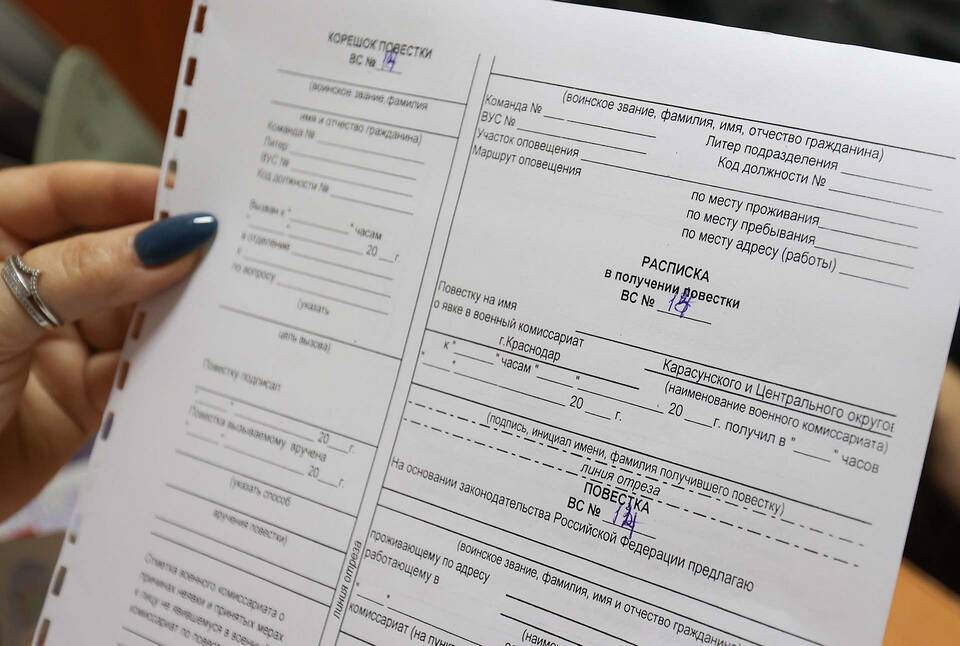 КОРЕШОК ПОВЕСТКИ
ВС №
(воинское звание, фамилия
имя и отчество гражданина)
Команда №
Литер
ВУС №
Код должности №
Вызван к " " часам
" " 20 г.
в отделение
к
по вопросу
(указать
цель вызова)
Повестку подписал
" " 20 г.
Повестка вызываемому вручена
" " 20 г.
(указать способ
вручения повестки)
Отметка военного комиссариата о
причинах неявки и принятых мерах
к лицу не явившемуся в
комиссариат по
линия отреза
(воинское звание, фамилия, имя, отчество гражданина)
Команда № Литер подразделения
ВУС № Код должности №
Участок оповещения
Маршрут оповещения
по месту проживания
по месту пребывания
по месту адресу (работы)
РАСПИСКА
в получении повестки
ВС №
Повестку на имя
о явке в военный комиссариат Карасунского и Центрального округов
г.Краснодар (наименование военного комиссариата)
к " " часам " " 20 г. получил в " " часов
" " 20 г.
(подпись, инициал имени, фамилия получившего повестку)
линия отреза
ПОВЕСТКА
ВС №
На основании законодательства Российской Федерации предлагаю
(воинское звание, фамилия, имя и отчество гражданина)
проживающему по адресу
работающему в
комиссариат (на